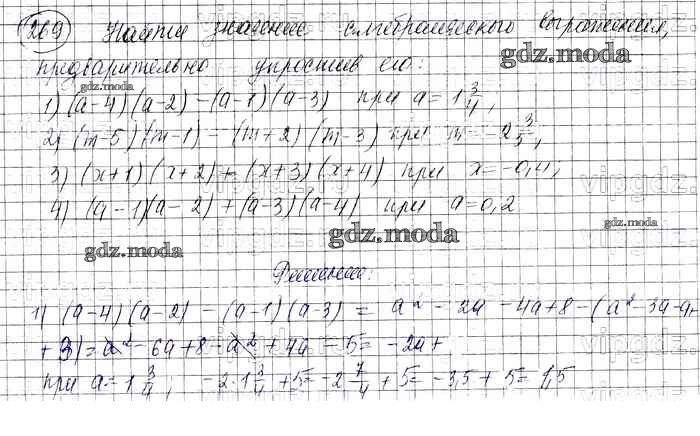 269 Найти значение алгебраического выражения,
gdz.moda
предварительно упростив его:
gdz.moda
1) (a-4)(a-2)-(a-1)(a-3) при a=1 3/4;
2) (m-5)(m-1)-(m+2)(m-3) при m=-2 3/5;
3) (x+1)(x+2)+(x+3)(x+4) при x=-0,4;
4) (a-1)(a-2)+(a-3)(a-4) при a=0,2
gdz.moda
gdz.moda
gdz.moda
Решение:
1) (a-4)(a-2)-(a-1)(a-3) = a²-2a-4a+8-(a²-3a-a+
+3)=a²-6a+8-a²+4a-5=-2a+
при a=1 3/4; -2·1 3/4+5=-2 7/4+5=-3,5+5=1,5
vipgdz.ru